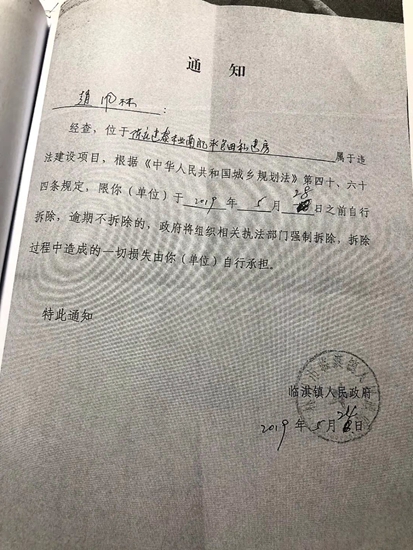 通知
赵凤林：
经查，位于 属于违
法建设项目，根据《中华人民共和国城乡规划法》第四十、六十
四条规定，限你（单位）于 2019 年 5 月 28 日之前自行
拆除，逾期不拆除的，政府将组织相关执法部门强制拆除，拆除
过程中造成的一切损失由你（单位）自行承担。
特此通知
临淇镇人民政府
2019 年 5 月 日